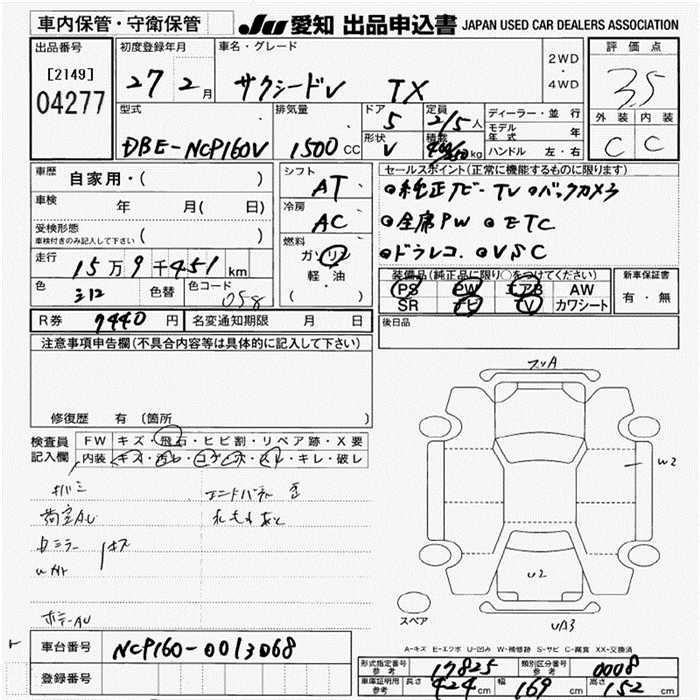 車内保管・守衛保管
JU 愛知 出品申込書 JAPAN USED CAR DEALERS ASSOCIATION
出品番号
[2149]
04277
初度登録年月
27 2月
車名・グレード
サクシードV TX
2WD
・
4WD
評価点
3.5
外装 内装
C C
型式
DBE-NCP160V
排気量
1500 CC
ドア
5
形状
V
定員
2/5人
積載
kg
ディーラー・並行
モデル年式 年
ハンドル 左・右
車歴
自家用・( )
車検
年 月( 日)
受検形態
車検付きのみ記入して下さい ( )
走行
15万9千451km
色
シロ 色替
色コード
058
シフト
AT
冷房
AC
燃料
ガソリン
軽・油
( )
セールスポイント(正常に機能するものに限ります)
●純正ナビー TV ●バックカメラ
●全席PW ●ETC
●ドラレコ ●VSC
装備品(純正品に限り○をつけてください)
PS PW エアB AW
SR ナビ TV カワシート
新車保証書
有・無
R券 7440円 名変通知期限 月 日
後日品
注意事項申告欄(不具合内容等は具体的に記入して下さい)
修復歴 有(箇所
検査員
記入欄
FW キズ・飛石・ヒビ割・リペア跡・X要
内装 キズ・汚レ・コゲ・穴・スレ・キレ・破レ
荷室AU
エンドパネル
キズ
ボデーAU
W2
U2
UA3
スペア
A-キズ E-エクボ U-凹み W-補修跡 S-サビ C-腐食 XX-交換済
車台番号 NCP160-0013068
登録番号
形式指定番号
参考
17825
類別区分番号
参考
0008
車庫証明用
参考
長さ 424cm 幅 169cm 高さ 152cm